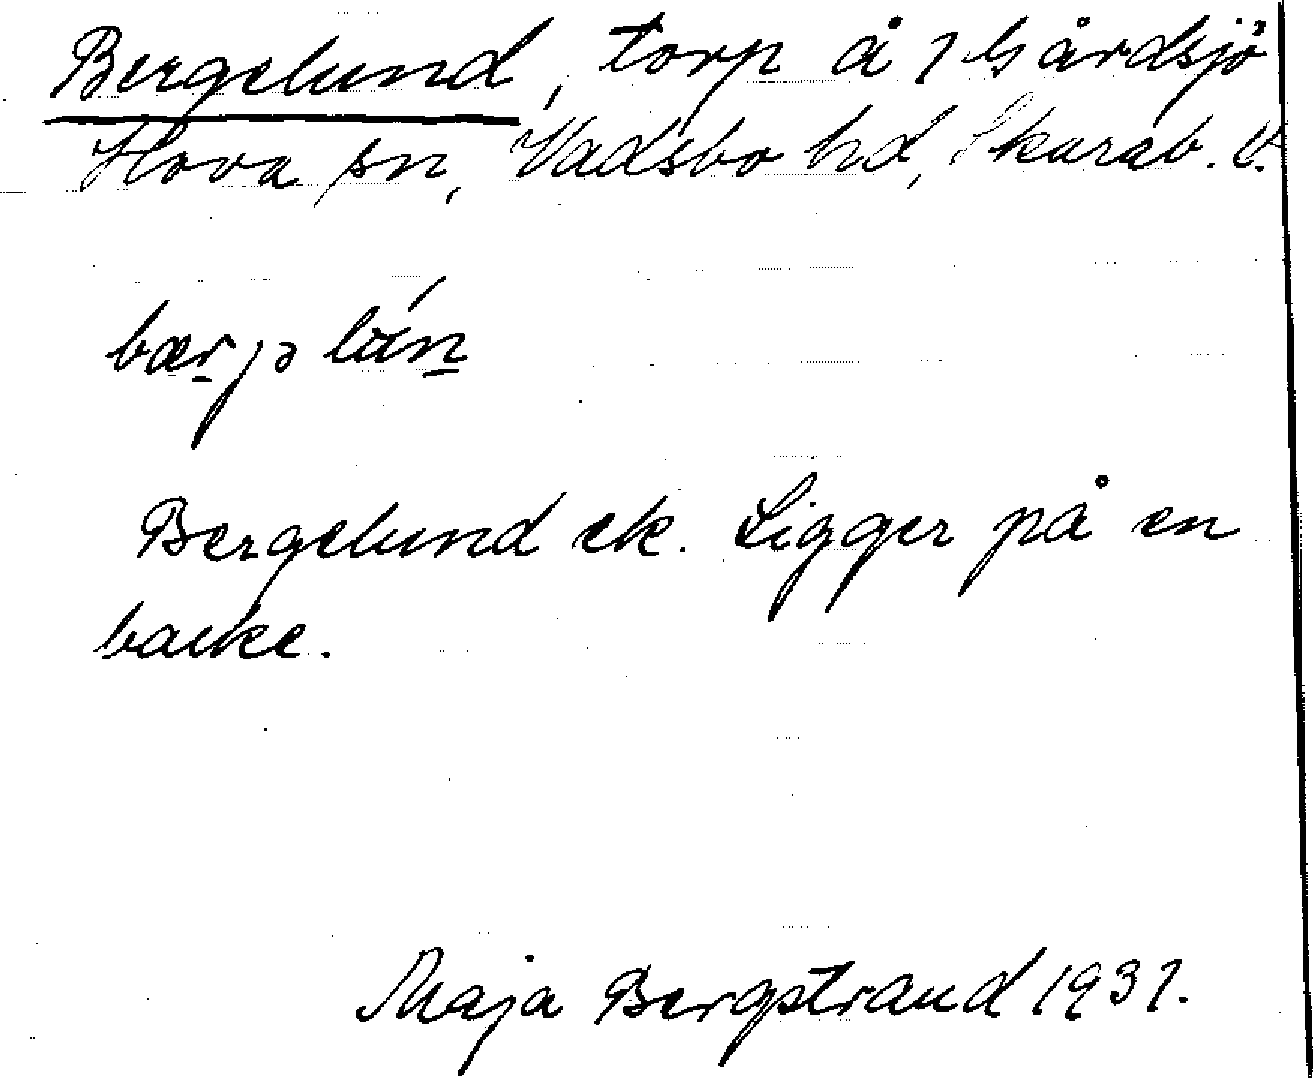 Bergelund, torp å 1 Gårdsjö
Hova sn, Vadsbo hd, Skarab. l.
bærjə
Bergelund ek. Ligger på en
backe.
Maja Bergstrand 1931.